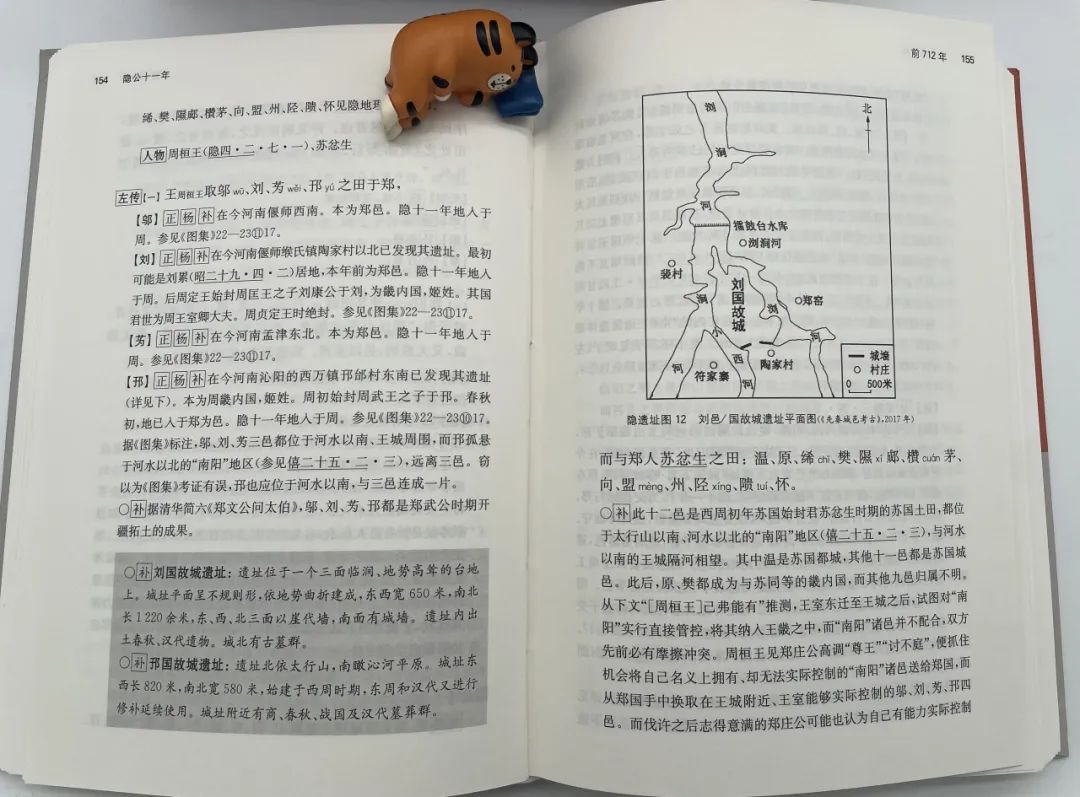 154 隐公十一年
絺、樊、隰郕、欑茅、向、盟、州、陉、隤、怀见隐地
人物 周桓王(隐四·二·七·一)、苏忿生
左传【一】王周桓王取邬wū、刘、芳wěi、邘yú之田于郑,
【邬】正 杨 补 在今河南偃师西南。本为郑邑。隐十一年地入于
周。参见《图集》22—23⑪17。
【刘】正 杨 补 在今河南偃师缑氏镇陶家村以北已发现其遗址。最初
可能是刘累(昭二十九·四·二)居地,本年前为郑邑。隐十一年地入
于周。后周定王始封周匡王之子刘康公于刘,为畿内国,姬姓。其国
君世为周王室卿大夫。周贞定王时绝封。参见《图集》22—23⑪17。
【芳】正 杨 补 在今河南孟津东北。本为郑邑。隐十一年地入于
周。参见《图集》22—23⑪17。
【邘】正 杨 补 在今河南沁阳的西万镇邘邰村东南已发现其遗址
(详见下)。本为周畿内国,姬姓。周初始封周武王之子于邘。春秋
初,地已入于郑为邑。隐十一年地入于周。参见《图集》22—23⑩17。
据《图集》标注,邬、刘、芳三邑都位于河水以南、王城周围,而邘孤悬
于河水以北的“南阳”地区(参见僖二十五·二·三),远离三邑。窃
以为《图集》考证有误,邘也应位于河水以南,与三邑连成一片。
○补 据清华简六《郑文公问太伯》,邬、刘、芳、邘都是郑武公时期开
疆拓土的成果。
○补 刘国故城遗址:遗址位于一个三面临涧、地势高耸的台地
上。城址平面呈不规则形,依地势曲折建成,东西宽650米,南北
长1220余米,东、西、北三面以崖代墙,南面有城墙。遗址内出
土春秋、汉代遗物。城北有古墓群。
○补 邘国故城遗址:遗址北依太行山,南瞰沁河平原。城址东
西长820米,南北宽580米,始建于西周时期,东周和汉代又进行
修补延续使用。城址附近有商、春秋、战国及汉代墓葬群。
前712年 155
北
浏
涧
河
播鼓台水库
浏涧河
裴村
刘国故城
郑窑
涧
浏
河
小
西
河
河
符家寨
陶家村
城墙
村庄
0 500米
隐遗址图12 刘邑/国故城遗址平面图(《先秦城邑考古》,2017年)
而与郑人苏忿生之田:温、原、絺chī、樊、隰xí郕、欑cuán茅、
向、盟mèng、州、陉xíng、隤tuí、怀。
○补 此十二邑是西周初年苏国始封君苏忿生时期的苏国土田,都位
于太行山以南、河水以北的“南阳”地区(僖二十五·二·三),与河水
以南的王城隔河相望。其中温是苏国都城,其他十一邑都是苏国城
邑。此后,原、樊都成为与苏同等的畿内国,而其他九邑归属不明。
从下文“[周桓王]己弗能有”推测,王室东迁至王城之后,试图对“南
阳”实行直接管控,将其纳入王畿之中,而“南阳”诸邑并不配合,双方
先前必有摩擦冲突。周桓王见郑庄公高调“尊王”“讨不庭”,便抓住
机会将自己名义上拥有、却无法实际控制的“南阳”诸邑送给郑国,而
从郑国手中换取在王城附近、王室能够实际控制的邬、刘、芳、邘四
邑。而伐许之后志得意满的郑庄公可能也认为自己有能力实际控制